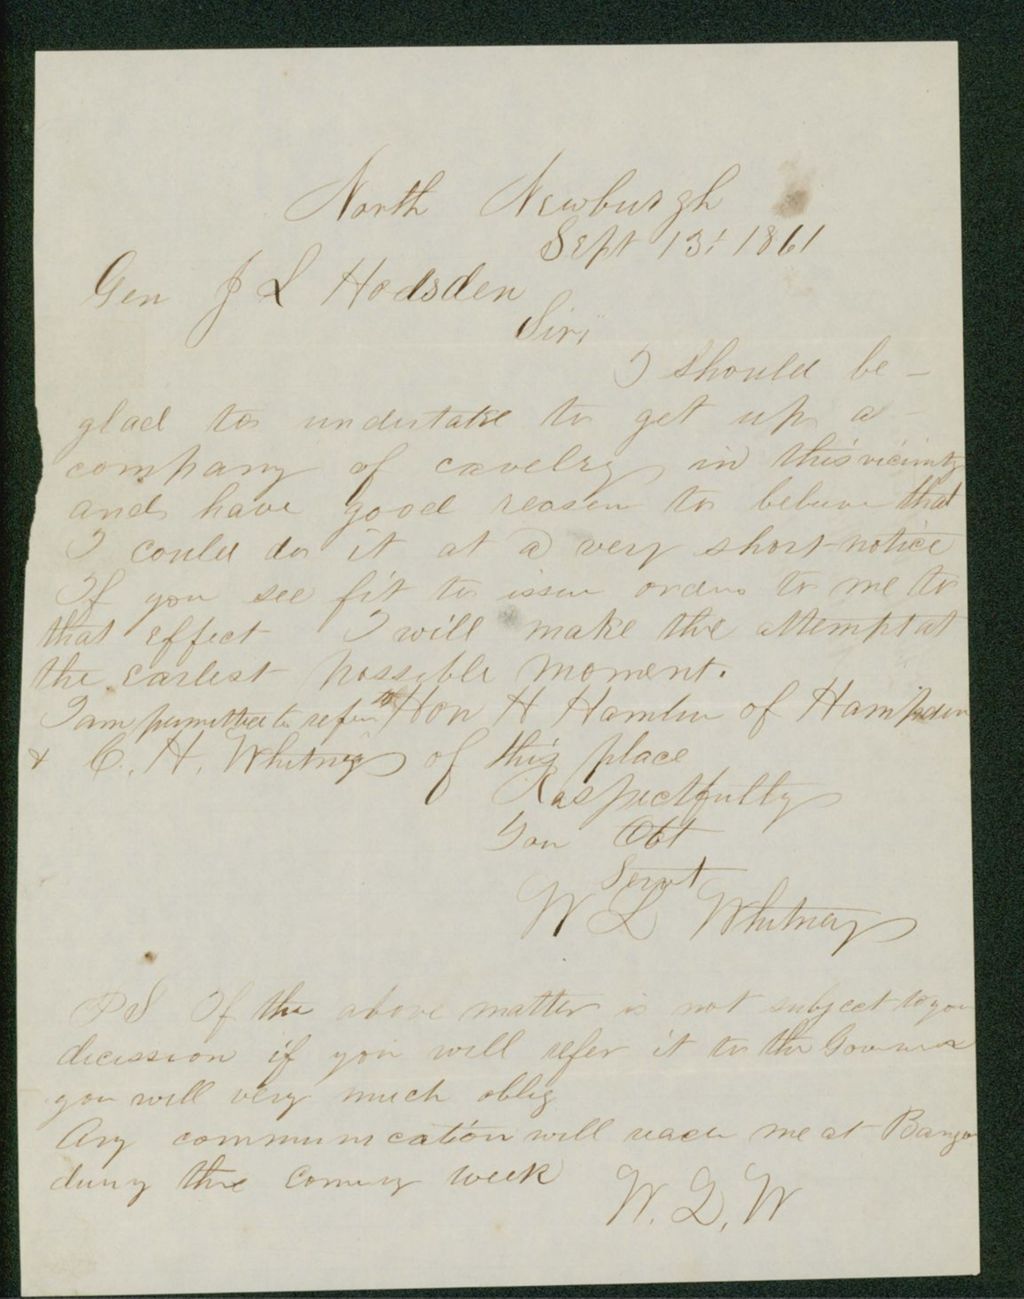 North Newburgh
Sept 13: 1861
Gen J L Hodsden
Sir;
I should be -
glad to undertake to get up a
company of cavelry in this vicinity
and have good reason to believe that
I could do it at a very short notice
If you see fit to issue orders to me to
that effect I will make the attempt at
the earliest possible moment.
I am permitted to refer to Hon H Hamlin of Hampden
& C. H. Whitney of this place
Respectfully
You Obt
Servt
W L Whitney
PS If the above matter is not subject to you
decission if you will refer it to the Governor
you will very much oblig
Any communication will reach me at Bangor
during the coming week
W. L. W